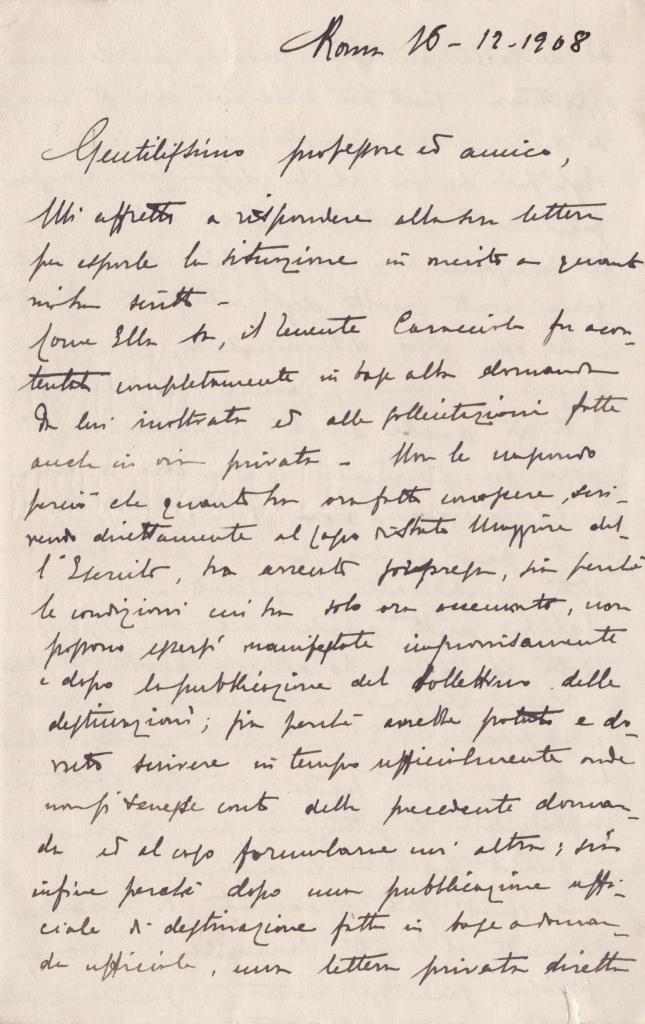 Roma 16-12-1908
Gentilissimo professore ed amico,
Mi affretto a rispondere alla sua lettera
per esporle la situzione in merito a quanto
mi ha scritto -
Come Ella sa, il Tenente Caracciolo fu acon-
tentato completamente in base alla domanda
da lui inoltrata ed alle sollicitazioni fatte
anche in via privata - Non le nascondo
perciò che quanto ha ora fatto conoscere, scri-
vendo direttamente al Capo di Stato Maggiore del-
l'Esercito, ha arrecato sorpresa, sia perchè
le condizioni cui ha solo ora accennato, non
possono essersi manifestate improvvisamente
e dopo la pubblicazione del Bollettino delle
destinazioni; sia perchè avrebbe potuto e do-
vuto scrivere in tempo ufficialmente onde
non si tenesse conto della precedente doman-
da ed al caso formularne un'altra; sia
infine perchè dopo una pubblicazione uffi-
ciale di destinazione fatta in base a doman-
da ufficiale, una lettera privata diretta